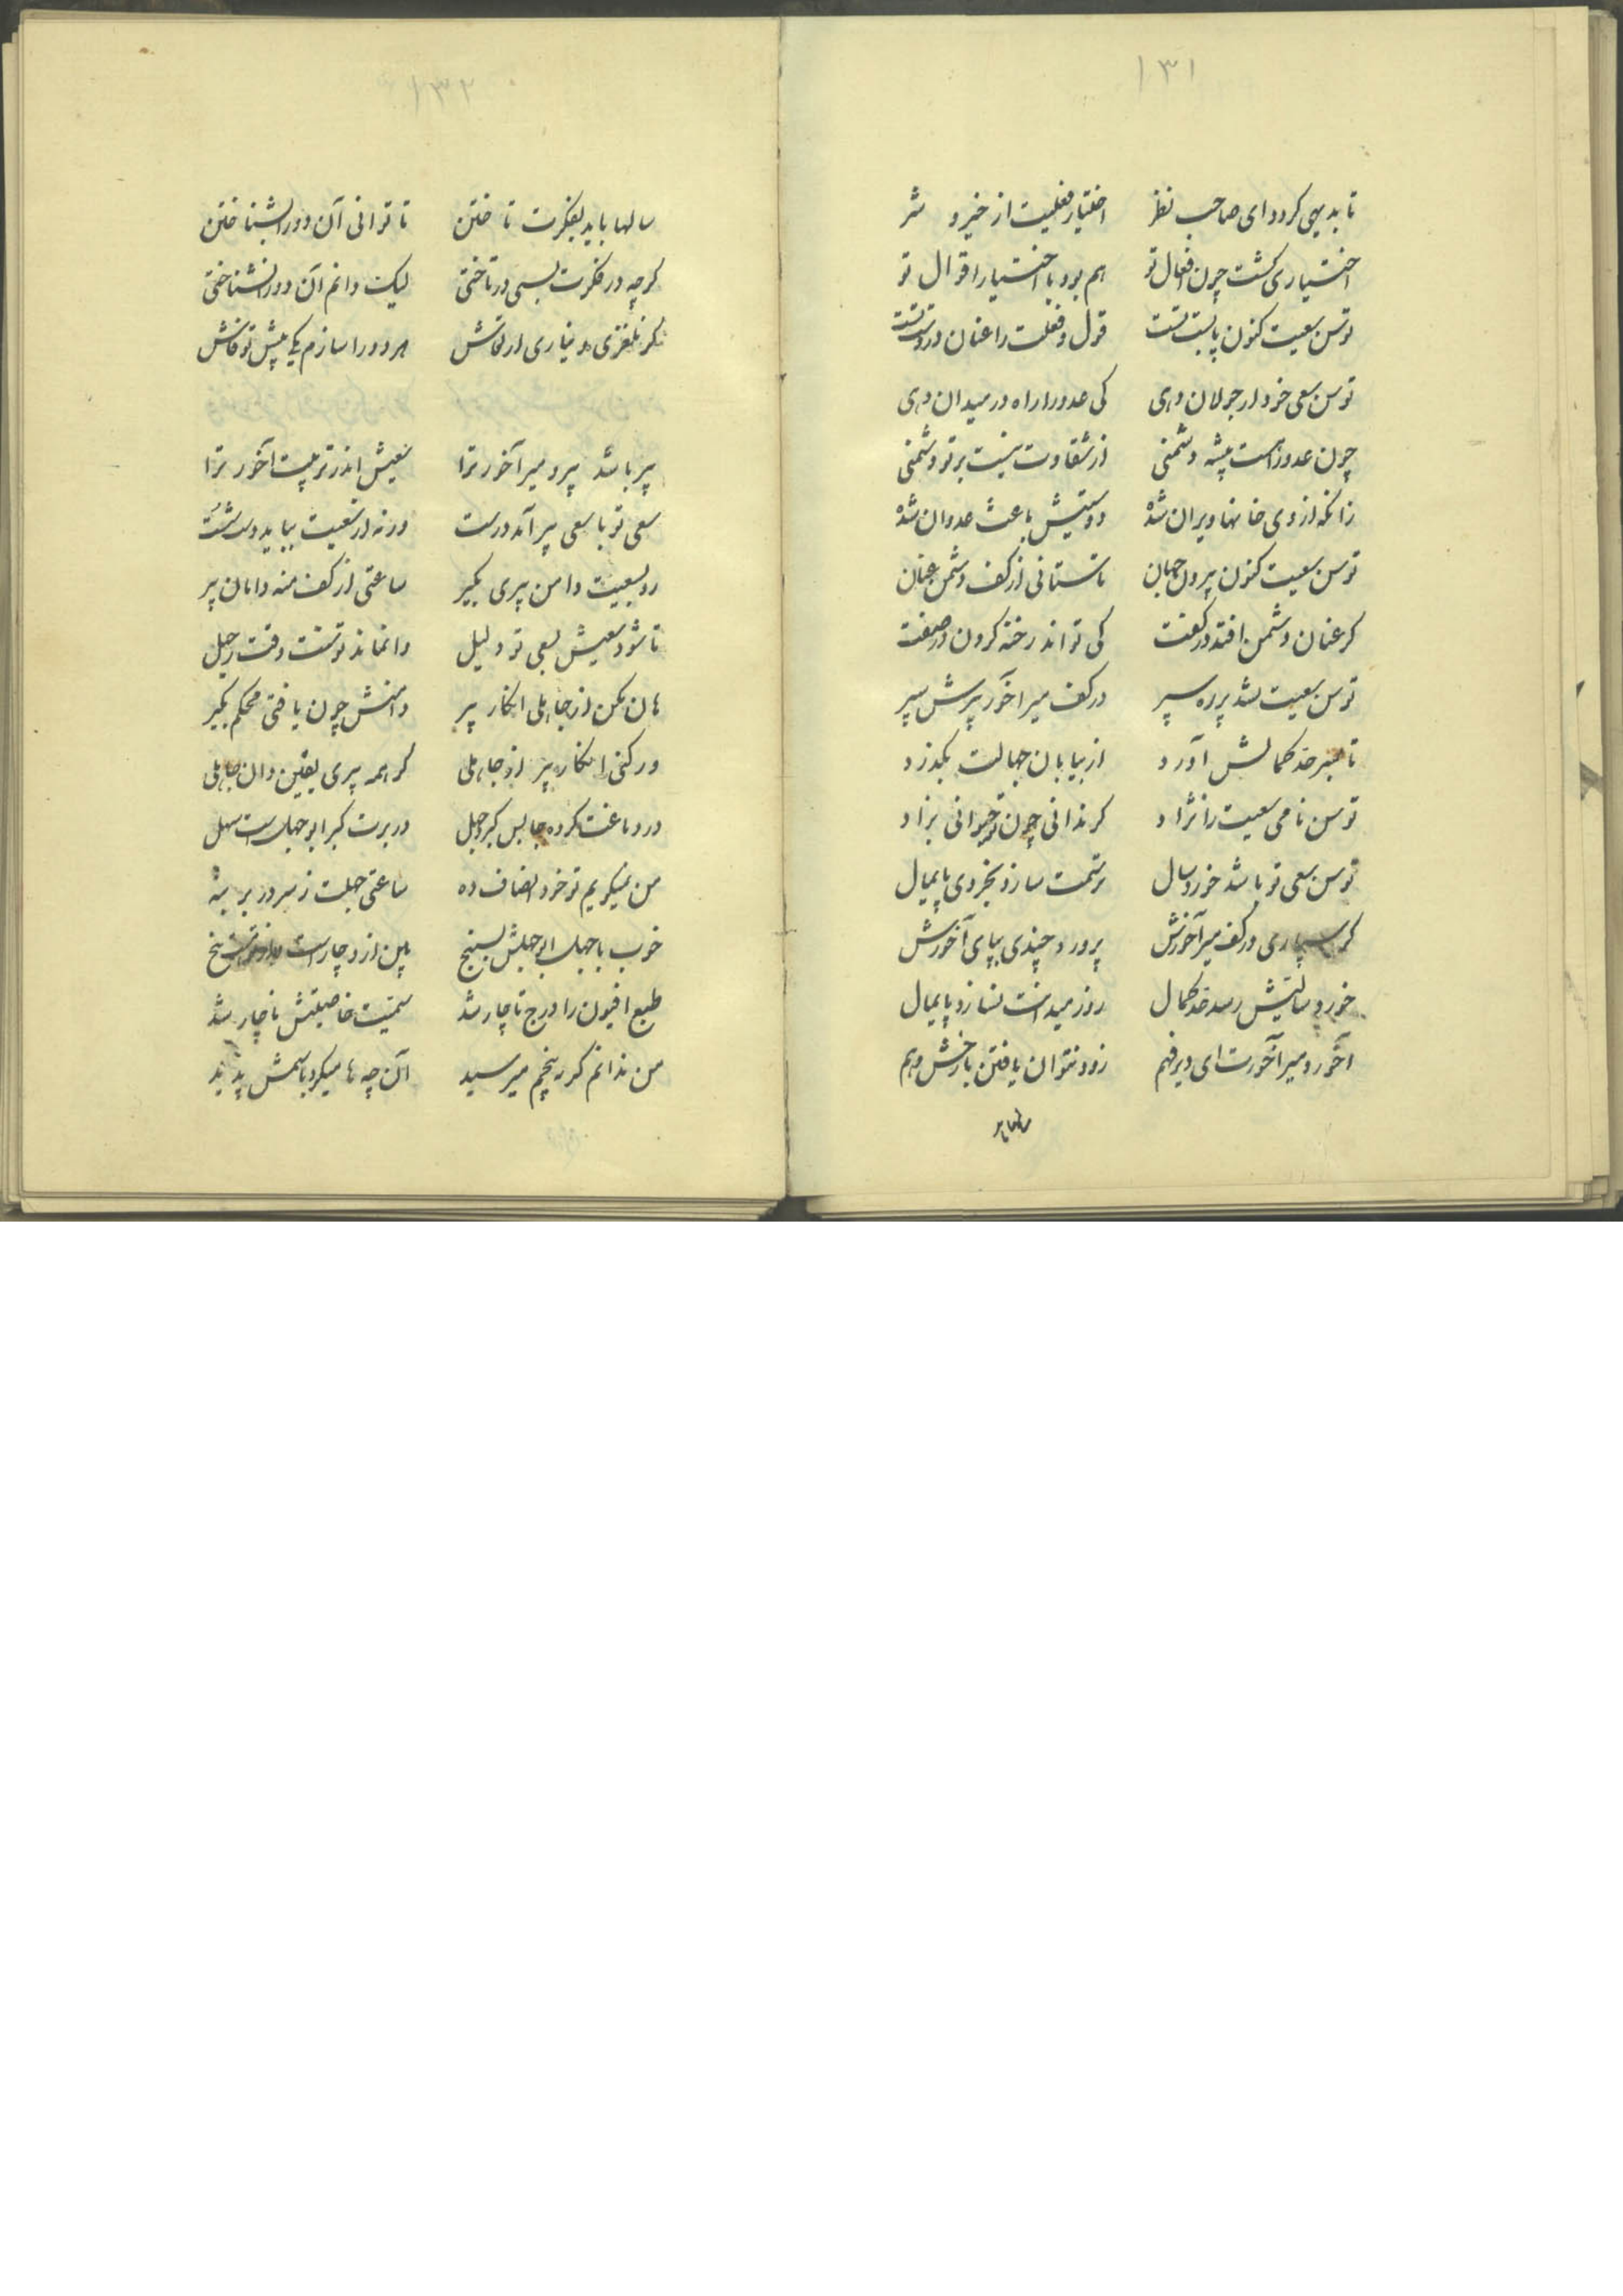 ۱۳۱
تا بدیهی کردد ای صاحب نظر اختیار فعلیت از خیر و شر
اختیاری کشت چون افعال تو هم بود با اختیار اقوال تو
توسن سعیت کنون پابست تست قول و فعلت را عنان در دست تست
توسن سعی خود ار جولان دهی کی عدو را راه در میدان دهی
چون عدو راست پیشه دشمنی از شقاوت نیست بر تو دشمنی
زانکه از وی خانها ویران شده دوستیش باعث عدوان شده
توسن سعیت کنون بیرون جهان تا ستانی از کف دشمن عنان
کر عنان دشمن افتد در کفت کی تواند رخنه کردن در صفت
توسن سعیت شد پر ره سپر در کف میر اخور پیرش سپر
تا بسر حد کمالش آورد از بیابان جهالت بکذرد
توسن نامی سعیت را نژاد کر ندانی چون تو حیوانی بزاد
توسن سعی تو باشد خورد سال ترسمت سازد بخردی پایمال
کر سپاری در کف میر آخورش پرورد چندی بپای آخورش
خورد سالیش رسد حد کمال روز میدانت نسازد پایمال
آخور و میر آخورت ای دیر فهم زود نتوان یافتن با رخش وهم
سالها باید
۱۳۲
سالها باید بفکرت تاختن تا توانی آن دو را بشناختن
کرچه در فکرت بسی در تاختی لیک دانم آن دو را نشناختی
کر نلغزی و نیاری ار تو فاش هر دو را سازم یکی پیش تو فاش
پیر باشد پیر و میر آخور ترا سعیش اندر تربیت آخور ترا
سعی تو با سعی پیر آمد درست ورنه از سعیت بباید دست شست
رو بسعیت دامن پیری بکیر ساعتی از کف منه دامان پیر
تا شود سعیش بسعی تو دلیل وا نماند توسنت وقت رحیل
هان مکن از جاهلی انکار پیر دامنش چون یافتی محکم بکیر
ور کنی انکار پیر از جاهلی کر همه پیری یقین دان جاهلی
در دماغت کرده جا بس کبر و جهل در برت کبر ابو جهل است سهل
من نمیکویم تو خود انصاف ده ساعتی جهلت ز سر در بر بنه
خوب با جهل ابو جهلش بسنج بین از و چار است
طبع افیون را درج تا چار شد سمیت خاصیتش ناچار شد
من ندانم کر به پنجم میرسید آن چه ها میکرد با سمش پدید